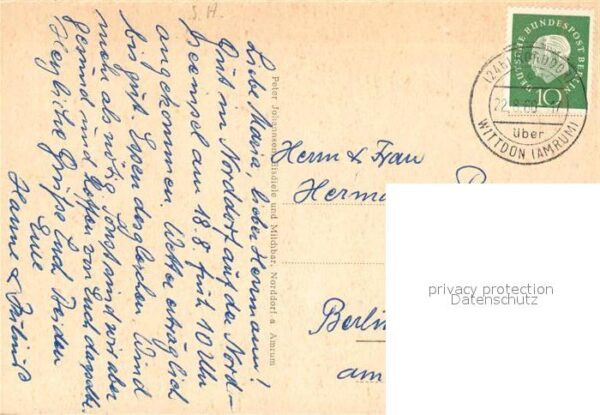 S. H.
Liebe Maria, lieber Hermann!
Gut in Norddorf auf der Nord-
seeinsel am 18.8. früh 10 Uhr
angekommen. Wetter erträglich
bis gut. Essen desgleichen. Wind
mehr als nötig. Sonst sind wir aber
gesund und hoffen von Euch dasselbe.
Herzliche Grüße Euch Beiden
Eure
Hanne &
Peter Johannsen, Eisdiele und Milchbar, Norddorf a Amrum
DEUTSCHE BUNDESPOST BERLIN
10
(24b) NORDDORF
22.8.60
über
WITTDÜN (AMRUM)
Herrn & Frau
Berlin
am
privacy protection
Datenschutz